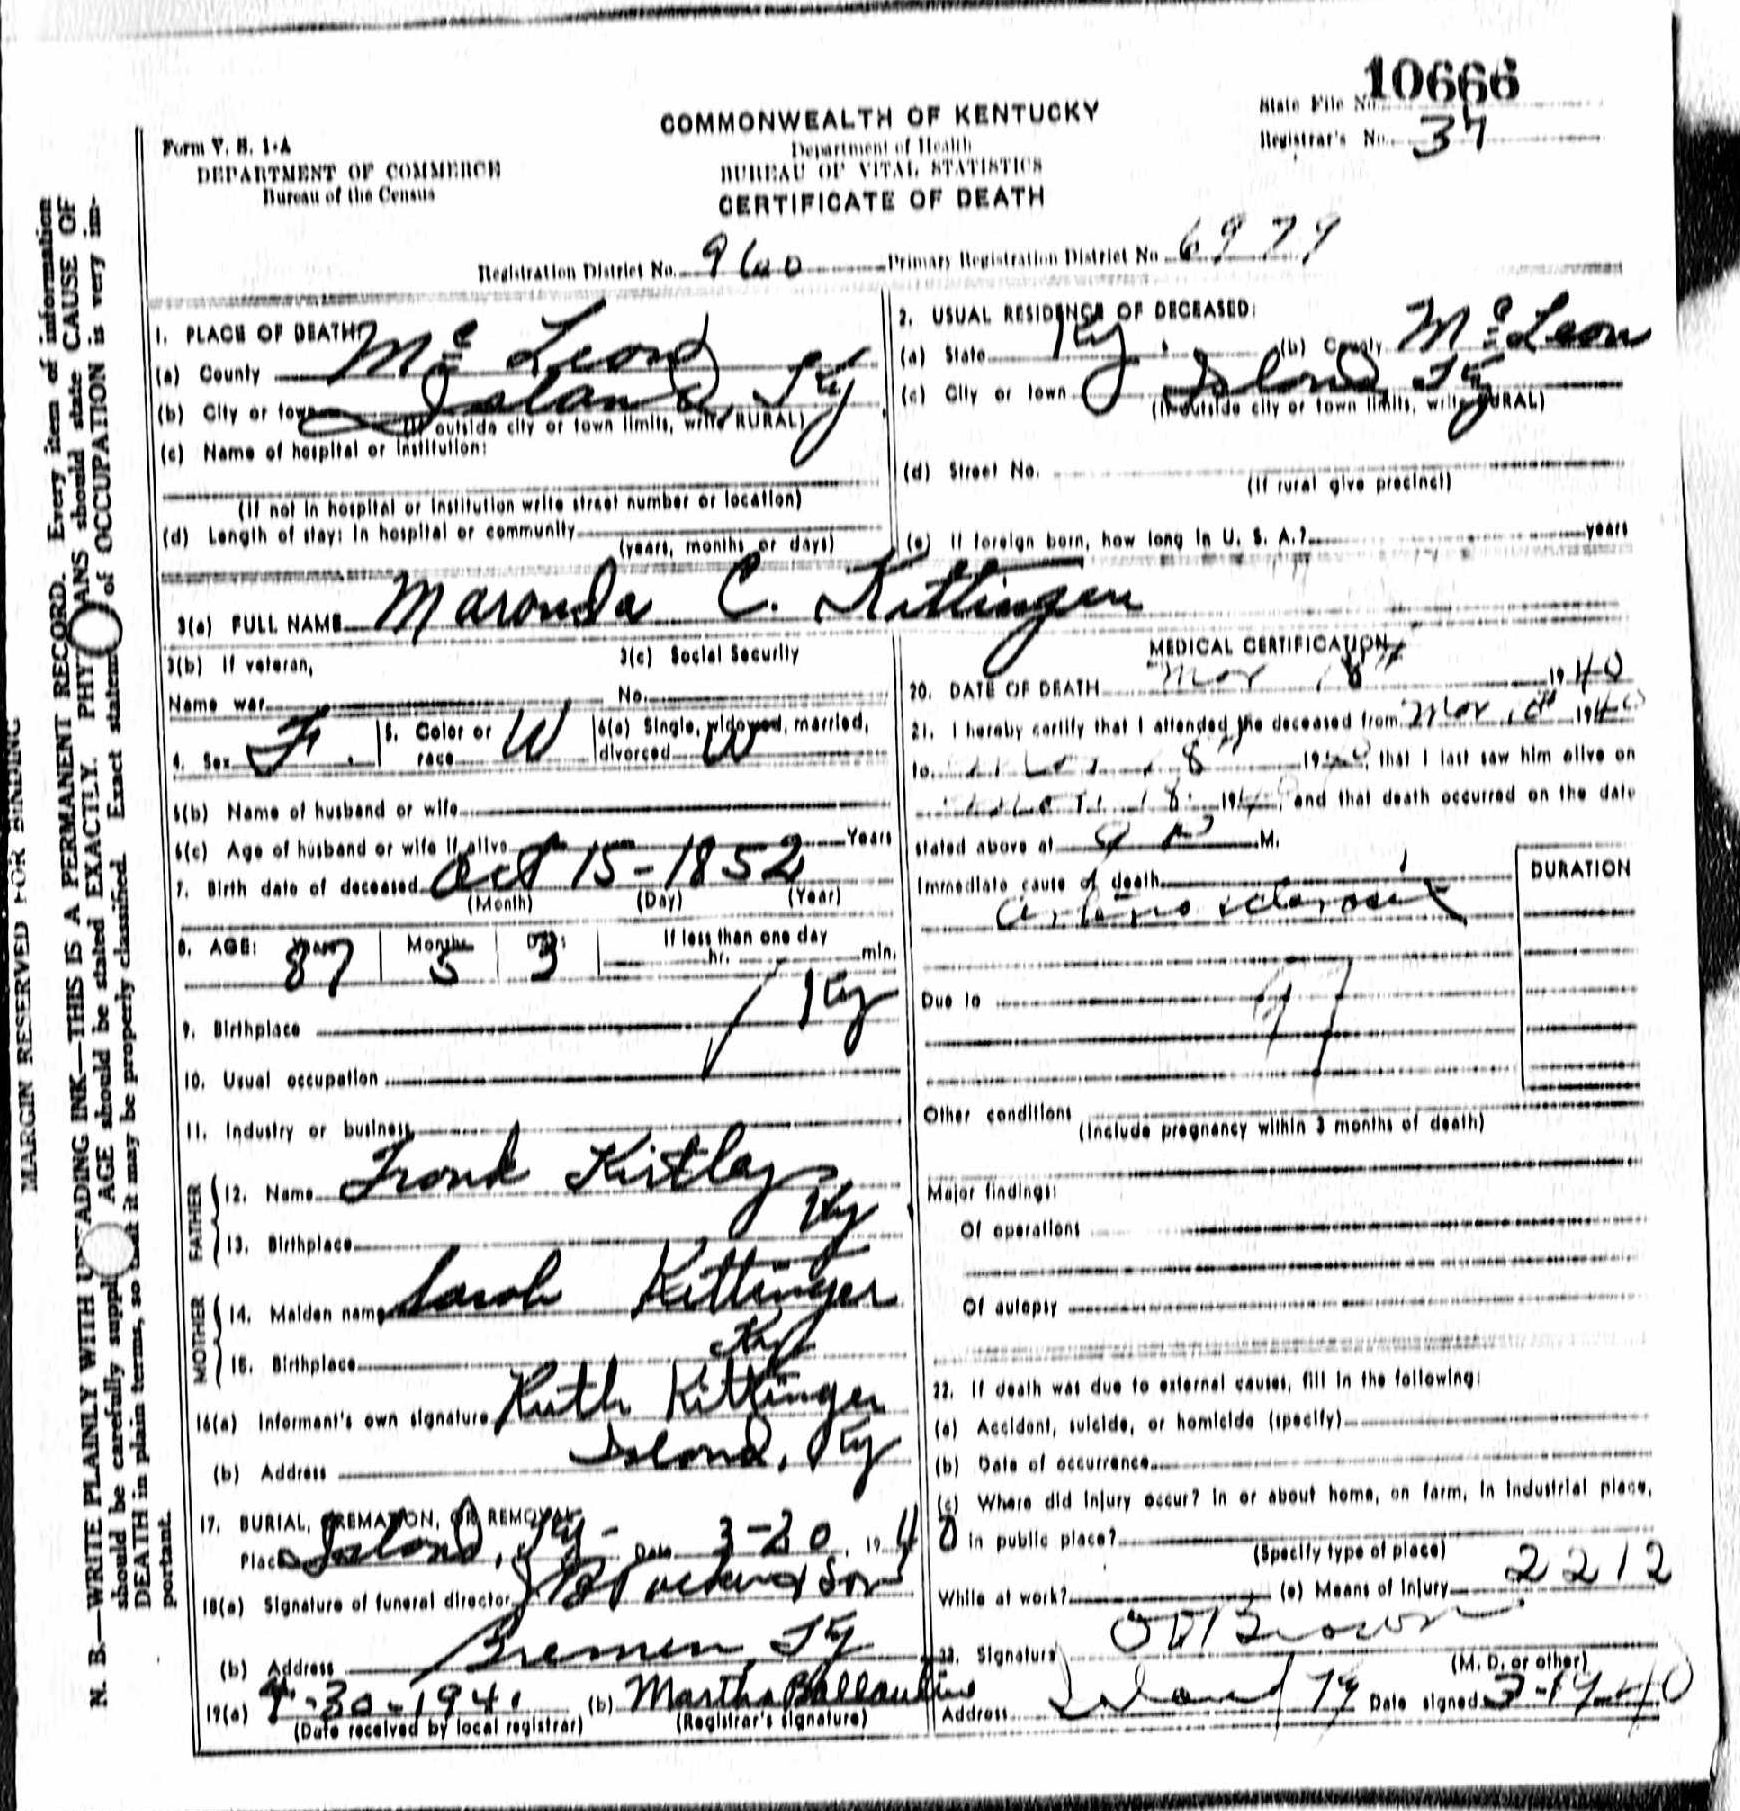 10666
State File No.
Registrar's No. 37
COMMONWEALTH OF KENTUCKY
Department of Health
BUREAU OF VITAL STATISTICS
CERTIFICATE OF DEATH
Form V. S. 1-A
DEPARTMENT OF COMMERCE
Bureau of the Census
Registration District No. 960 Primary Registration District No. 6979
1. PLACE OF DEATH:
(a) County Mc Lean
(b) City or town Island, Ky
(If outside city or town limits, write RURAL)
(c) Name of hospital or institution:
(If not in hospital or institution write street number or location)
(d) Length of stay: In hospital or community
(years, months or days)
2. USUAL RESIDENCE OF DECEASED:
(a) State Ky (b) County Mc Lean
(c) City or town Island, Ky
(If outside city or town limits, write RURAL)
(d) Street No.
(If rural give precinct)
(e) If foreign born, how long in U. S. A.? years
3(a) FULL NAME Maronda C. Kittinger
3(b) If veteran,
Name war
3(c) Social Security
No.
4. Sex F. 5. Color or race W 6(a) Single, widowed, married, divorced W
6(b) Name of husband or wife
6(c) Age of husband or wife if alive Years
7. Birth date of deceased Oct 15-1852
(Month) (Day) (Year)
8. AGE: Years 87 Months 5 Days 3 If less than one day
hr. min.
9. Birthplace Ky
10. Usual occupation
11. Industry or business
FATHER
12. Name Frank Kirtley
13. Birthplace Ky
MOTHER
14. Maiden name Sarah Kittinger
15. Birthplace Ky
16(a) Informant's own signature Ruth Kittinger
(b) Address Island, Ky
17. BURIAL, CREMATION, OR REMOVAL
Place Island, Ky- Date 3-20, 1940
18(a) Signature of funeral director Son
(b) Address Bremen, Ky
19(a) -30-194 (b) Martha Ballantine
(Date received by local registrar) (Registrar's signature)
MEDICAL CERTIFICATION
20. DATE OF DEATH Mar 18th 1940
21. I hereby certify that I attended the deceased from Mar 1940
to 18 1940, that I last saw him alive on
18 1940, and that death occurred on the date
stated above at M.
Immediate cause of death
DURATION
arteriosclerosis
Due to 97
Other conditions
(Include pregnancy within 3 months of death)
Major findings:
Of operations
Of autopsy
22. If death was due to external causes, fill in the following:
(a) Accident, suicide, or homicide (specify)
(b) Date of occurrence
(c) Where did injury occur? In or about home, on farm, in industrial place,
in public place?
(Specify type of place)
While at work? (e) Means of Injury 2212
23. Signature Brown
(M. D. or other)
Address Island Ky Date signed 3-19-40
MARGIN RESERVED FOR BINDING
N. B.—WRITE PLAINLY WITH UNFADING INK—THIS IS A PERMANENT RECORD. Every item of information
should be carefully supplied. AGE should be stated EXACTLY. PHYSICIANS should state CAUSE OF
DEATH in plain terms, so that it may be properly classified. Exact statement of OCCUPATION is very im-
portant.